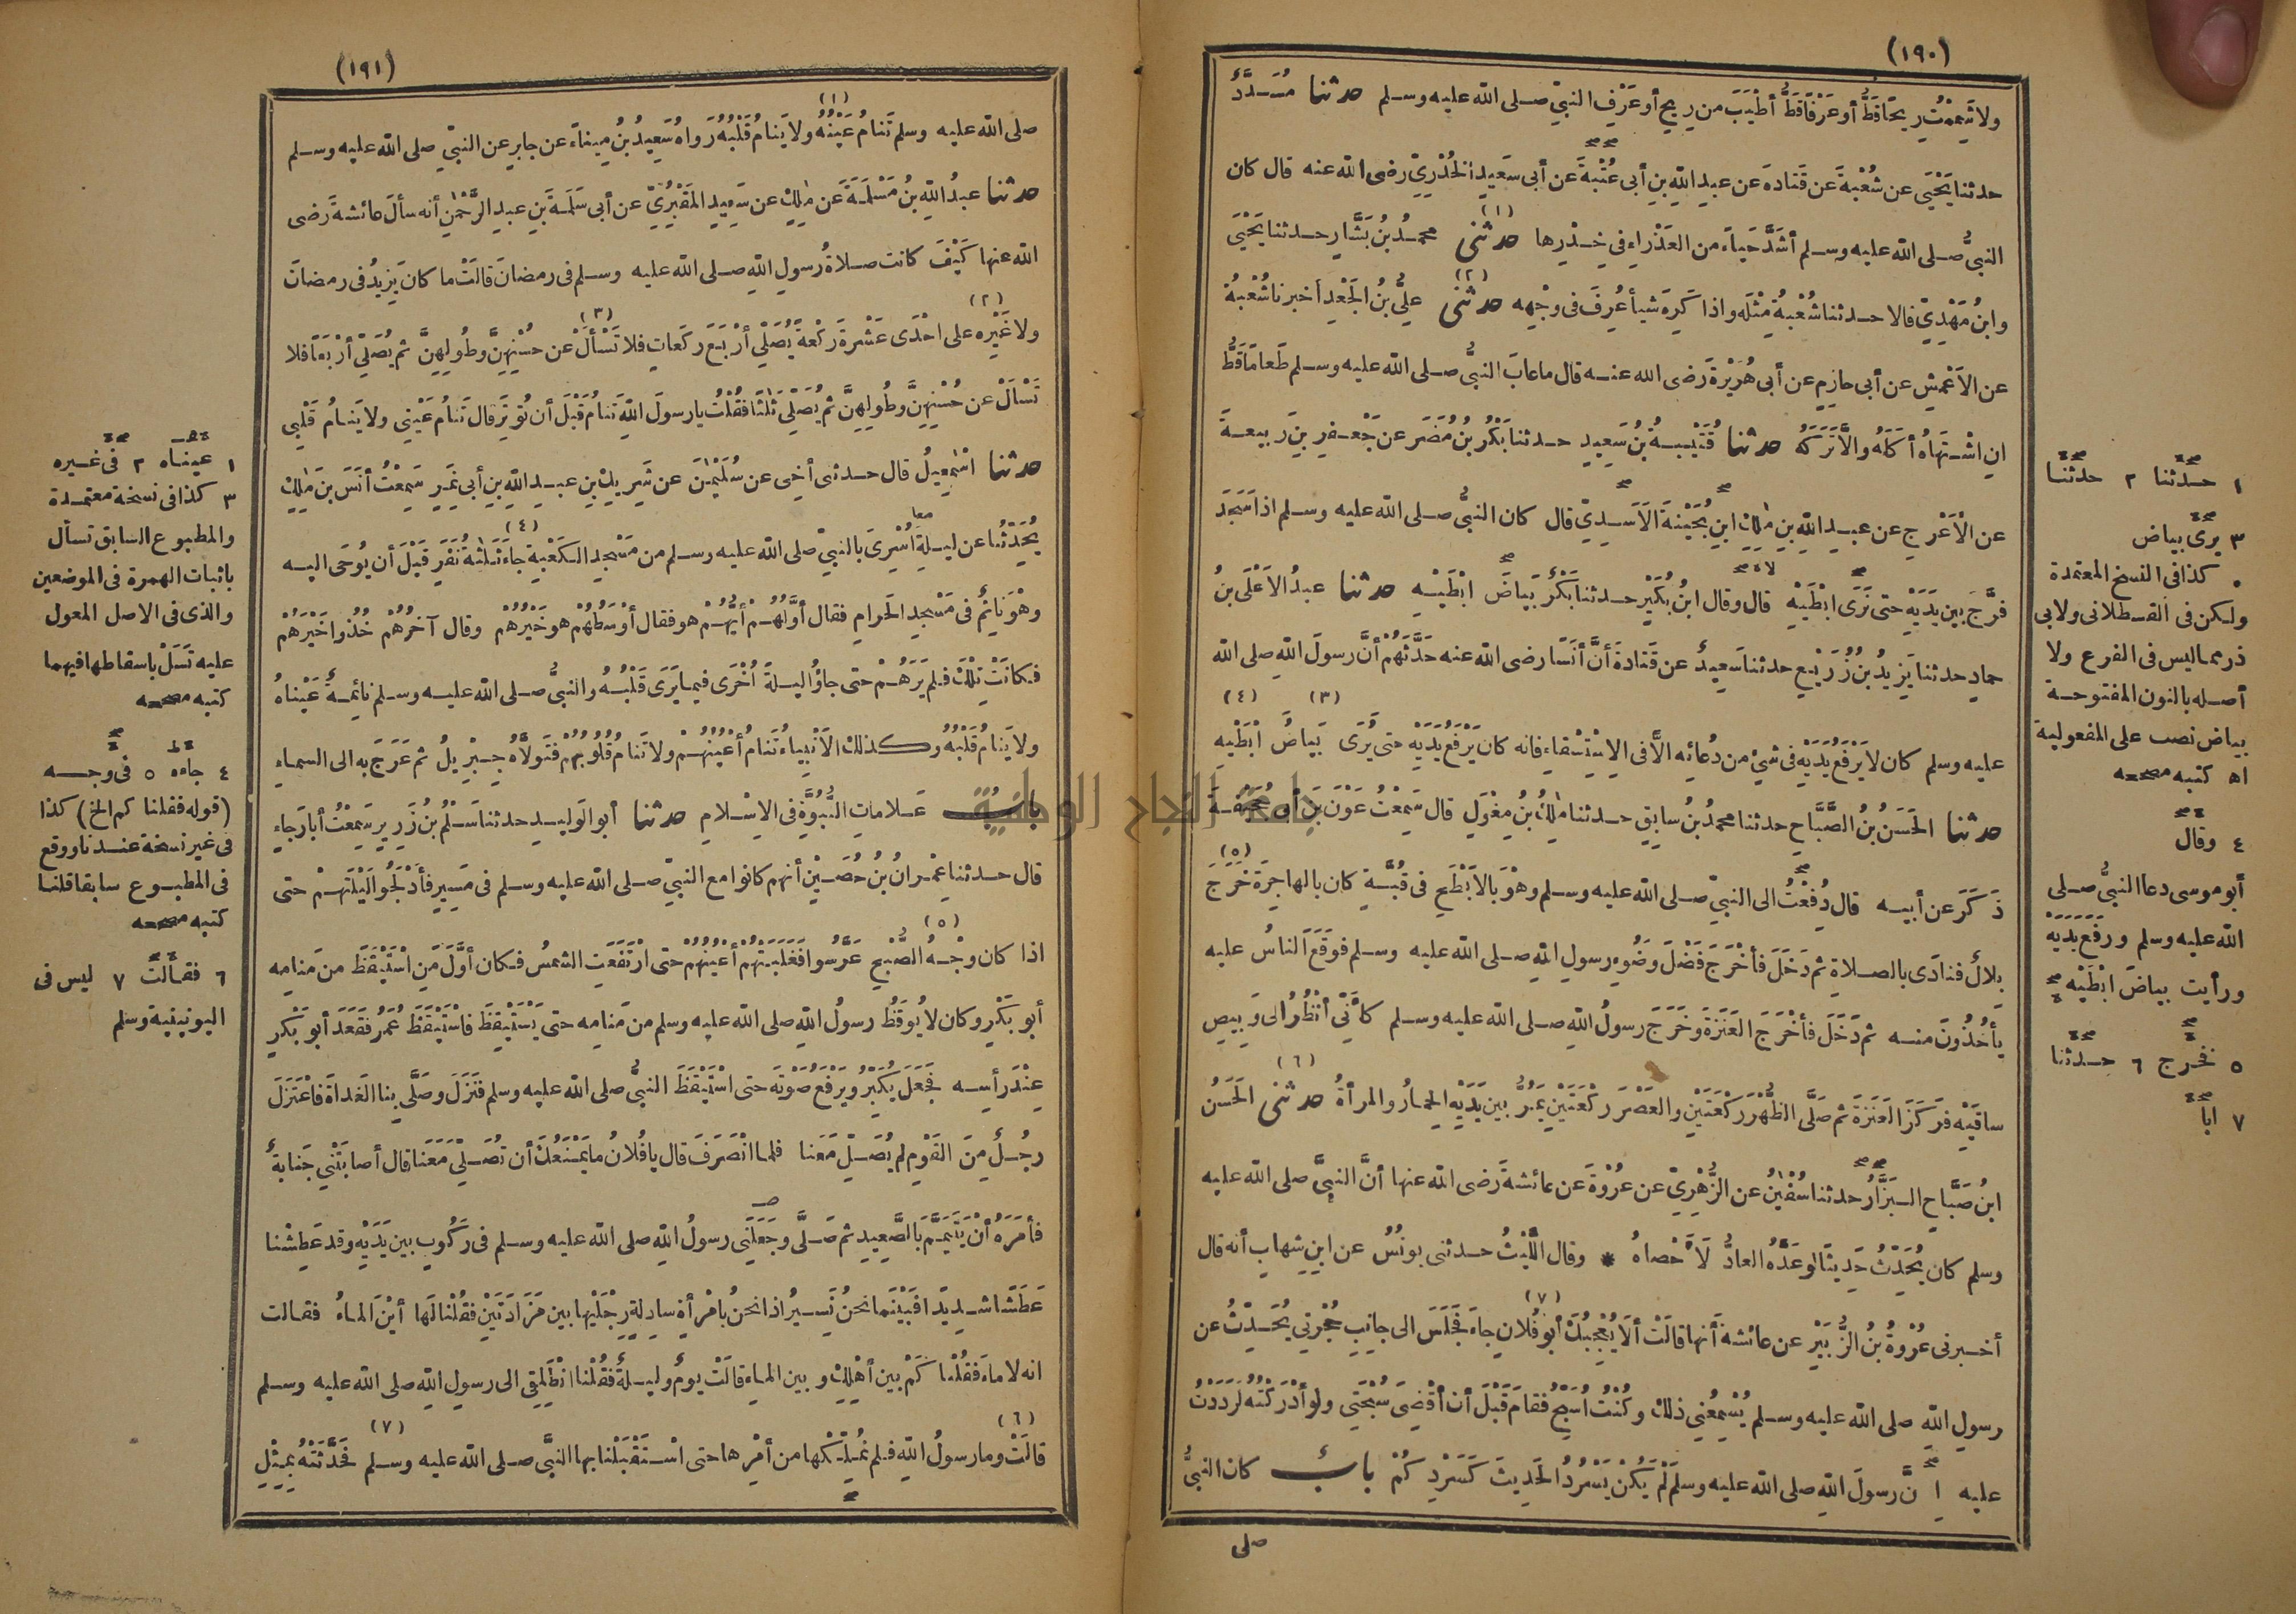 (١٩٠)
ولا شَمِمْتُ رِيحًا قَطُّ أو عَرْفًا قَطُّ أطْيَبَ من رِيحِ أو عَرْفِ النبيّ صلى الله عليه وسلم حدثنا مُسَدَّدٌ
حدثنا يَحْيَى عن شُعْبَةَ عن قَتادَةَ عن عبدِ اللهِ بنِ أبى عُتْبَةَ عن أبى سَعِيدٍ الخُدْرِىّ رضى الله عنه قال كان
النبىُّ صلى الله عليه وسلم أشَدَّ حَياءً من العَذْراءِ فى خِدْرِها حدثنى (١) محمدُ بنُ بَشَّارٍ حدثنا يَحْيَى
وابنُ مَهْدِىّ قالا حدثنا شُعْبَةُ مِثْلَه واذا كَرِهَ شيأ عُرِفَ فى وجْهِه حدثنى (٢) علىُّ بنُ الجَعْدِ أخبرنا شُعْبَةُ
عن الأَعْمَشِ عن أبى حازِمٍ عن أبى هُرَيْرَةَ رضى الله عنه قال ماعابَ النبىُّ صلى الله عليه وسلم طَعامًا قَطُّ
ان اشْتَهاهُ أكَلَهُ والَّا تَرَكَهُ حدثنا قُتَيْبَةُ بنُ سَعِيدٍ حدثنا بَكْرُ بنُ مُضَرَ عن جَعْفَرِ بنِ رَبيعةَ
عن الأَعْرَجِ عن عبدِ اللهِ بنِ مٰلِكٍ ابنِ بُحَيْنَةَ الأَسَدِىّ قال كان النبىُّ صلى الله عليه وسلم اذا سَجَدَ
فرَّجَ بين يَدَيْهِ حتى نَرَى ابْطَيْهِ قال وقال ابنُ بُكَيْرٍ حدثنا بَكْرٌ بَياضَ ابْطَيْهِ حدثنا عبدُ الأَعْلَى بنُ
حمادٍ حدثنا يَزِيدُ بنُ زُرَيْعٍ حدثنا سَعِيدٌ عن قَتادةَ أنَّ أنَسًا رضى الله عنه حَدَّثَهُمْ أنَّ رسولَ اللهِ صلى الله
عليه وسلم كان لا يَرْفَعُ يَدَيْهِ فى شىْءٍ من دُعائِه الَّا فى الاسْتِسْقاءِ فانه كان يَرْفَعُ يَدَيْهِ حتى يُرَى (٣) بَياضُ ابْطَيْهِ (٤)
حدثنا الحَسَنُ بنُ الصَّبَّاحِ حدثنا محمدُ بنُ سابِقٍ حدثنا مٰلِكُ بنُ مِغْوَلٍ قال سَمِعْتُ عَوْنَ بنَ أبى جُحَيْفَةَ
ذَكَرَ عن أبيه قال دُفِعْتُ الى النبىّ صلى الله عليه وسلم وهْوَ بالأَبْطَحِ فى قُبَّةٍ كان بالهاجِرَةِ خَرَجَ (٥)
بِلالٌ فنادَى بالصلاةِ ثم دَخَلَ فأخْرَجَ فَضْلَ وَضُوءِ رسولِ اللهِ صلى الله عليه وسلم فوَقَعَ الناسُ عليه
يَأْخُذُونَ منه ثم دَخَلَ فأخْرَجَ العَنَزَةَ وخَرَجَ رسولُ اللهِ صلى الله عليه وسلم كأنّى أنْظُرُ الى وَبِيصِ
ساقَيْهِ فرَكَزَ العَنَزَةَ ثم صَلَّى الظُّهْرَ رَكْعَتَيْنِ والعَصْرَ رَكْعَتَيْنِ يَمُرُّ بين يَدَيْهِ الحِمارُ والمرأةُ حدثنى (٦) الحَسَنُ
ابنُ صَبَّاحٍ البَزَّارُ حدثنا سُفْيٰنُ عن الزُّهْرِىّ عن عُرْوَةَ عن عائشةَ رضى الله عنها أنَّ النبىَّ صلى الله عليه
وسلم كان يُحَدِّثُ حَدِيثًا لو عَدَّهُ العادُّ لَأَحْصاهُ * وقال اللَّيْثُ حدثنى يونُسُ عن ابنِ شهابٍ أنه قال
أخبرنى عُرْوَةُ بنُ الزُّبَيْرِ عن عائشةَ أنها قالَتْ ألَا يُعْجِبُكَ أبو فُلانٍ (٧) جاءَ فَجَلَسَ الى جانِبِ حُجْرَتِى يُحَدِّثُ عن
رسولِ اللهِ صلى الله عليه وسلم يُسْمِعُنِى ذلك وكُنْتُ أُسَبِّحُ فقامَ قَبْلَ أن أقْضِىَ سُبْحَتِى ولو أدْرَكْتُهُ لَرَدَدْتُ
عليه إنَّ رسولَ اللهِ صلى الله عليه وسلم لَمْ يَكُنْ يَسْرُدُ الحَدِيثَ كَسَرْدِكُمْ بابٌ كان النبىُّ
صلى
١ حدثنا ٢ حدثنا
٣ يرى بياض
٠ كذا فى النسخ المعتمدة
ولكن فى القسطلانى ولابى
ذر مما ليس فى الفرع ولا
أصله بالنون المفتوحة
بياض نصب على المفعولية
اه كتبه مصححه
٤ وقال
أبو موسى دعا النبىُّ صلى
الله عليه وسلم ورفَعَ يدَيْه
ورأيت بياضَ ابْطَيْه
٥ فخرج ٦ حدثنا
٧ ابا
(١٩١)
صلى الله عليه وسلم تَنامُ عَيْنُهُ (١) ولا يَنامُ قَلْبُهُ رَواهُ سَعِيدُ بنُ مِيناءَ عن جابِرٍ عن النبىّ صلى الله عليه وسلم
حدثنا عبدُ اللهِ بنُ مَسْلَمَةَ عن مٰلِكٍ عن سَعِيدٍ المَقْبُرِىّ عن أبى سَلَمَةَ بنِ عبدِ الرَّحْمٰنِ أنه سألَ عائشةَ رضى
الله عنها كَيْفَ كانت صلاةُ رسولِ اللهِ صلى الله عليه وسلم فى رمضانَ قالَتْ ما كان يَزِيدُ فى رمضانَ
ولا غَيْرِه (٢) على احْدَى عَشْرَةَ رَكْعةً يُصَلِّى أرْبَعَ رَكَعاتٍ فلا تَسْأَلْ (٣) عن حُسْنِهِنَّ وطُولِهِنَّ ثم يُصَلِّى أرْبَعًا فلا
تَسْأَلْ عن حُسْنِهِنَّ وطُولِهِنَّ ثم يُصَلِّى ثَلٰثًا فقُلْتُ يارسولَ اللهِ تَنامُ قَبْلَ أن تُوتِرَ قال تَنامُ عَيْنِى ولا يَنامُ قَلْبِى
حدثنا اسْمٰعِيلُ قال حدثنى أخِى عن سُلَيْمٰنَ عن شَرِيكِ بنِ عبدِ اللهِ بنِ أبى نَمِرٍ سَمِعْتُ أنَسَ بنَ مٰلِكٍ
يُحَدِّثُنا عن ليلةِ أُسْرِىَ بالنبىّ صلى الله عليه وسلم من مَسْجِدِ الكَعْبَةِ جاءَ (٤) ثَلٰثَةُ نَفَرٍ قَبْلَ أن يُوحَى اليه
وهْوَ نائِمٌ فى مَسْجِدِ الحَرامِ فقال أوَّلُهُمْ أيُّهُمْ هو فقال أوْسَطُهُمْ هو خَيْرُهُمْ وقال آخِرُهُمْ خُذُوا خَيْرَهُمْ
فكانَتْ تِلْكَ فلم يَرَهُمْ حتى جاؤُا ليلةً أُخْرَى فيما يَرَى قَلْبُهُ والنبىُّ صلى الله عليه وسلم نائِمةٌ عَيْناهُ
ولا يَنامُ قَلْبُهُ وكذلك الأَنْبِياءُ تَنامُ أعْيُنُهُمْ ولا تَنامُ قُلُوبُهُمْ فتَوَلَّاهُ جِبْرِيلُ ثم عَرَجَ به الى السماءِ
بابُ عَلاماتِ النُّبُوَّةِ فى الاسْلامِ حدثنا أبو الوَليدِ حدثنا سَلْمُ بنُ زَرِيرٍ سَمِعْتُ أبا رَجاءٍ
قال حدثنا عِمْرانُ بنُ حُصَيْنٍ أنهم كانوا مع النبىّ صلى الله عليه وسلم فى مَسِيرٍ فأدْلَجُوا لَيْلَتَهمْ حتى
اذا كان وجْهُ (٥) الصُّبْحِ عَرَّسُوا فغَلَبَتْهُمْ أعْيُنُهُمْ حتى ارْتَفَعَتِ الشمسُ فكان أوَّلَ مَنِ اسْتَيْقَظَ من مَنامِه
أبو بَكْرٍ وكان لا يُوقَظُ رسولُ اللهِ صلى الله عليه وسلم من مَنامِه حتى يَسْتَيْقِظَ فاسْتَيْقَظَ عُمَرُ فقَعَدَ أبو بَكْرٍ
عِنْدَ رأسِه فَجَعَلَ يُكَبِّرُ ويَرْفَعُ صَوْتَهُ حتى اسْتَيْقَظَ النبىُّ صلى الله عليه وسلم فنَزَلَ وصَلَّى بنا الغَداةَ فاعْتَزَلَ
رجُلٌ مِنَ القَوْمِ لم يُصَلِّ مَعَنا فلما انْصَرَفَ قال يافُلانُ ما يَمْنَعُكَ أن تُصَلِّىَ مَعَنا قال أصابَتْنِى جَنابةٌ
فأمَرَهُ أنْ يَتَيَمَّمَ بالصَّعِيدِ ثم صَلَّى وجَعَلَنِى رسولُ اللهِ صلى الله عليه وسلم فى رَكُوبٍ بين يَدَيْهِ وقد عَطِشْنا
عَطَشًا شديدًا فبَيْنَما نحنُ نَسِيرُ اذا نحنُ بامْرأةٍ سادِلةٍ رِجْلَيْها بين مَزادَتَيْنِ فقُلْنا لَها أيْنَ الماءُ فقالت
انه لا ماءَ فقُلْنا كَمْ بين أهْلِكِ وبين الماءِ قالَتْ يومٌ وليلةٌ فقُلْنا انْطَلِقِى الى رسولِ اللهِ صلى الله عليه وسلم
قالَتْ (٦) وما رسولُ اللهِ فلم نُمَلِّكْها من أمْرِها حتى اسْتَقْبَلْنا بها النبىَّ صلى الله عليه وسلم (٧) فَحَدَّثَتْهُ بمِثْلِ
١ عيناه ٢ فى غيره
٣ كذا فى نسخة معتمدة
والمطبوع السابق تسأل
باثبات الهمزة فى الموضعين
والذى فى الاصل المعول
عليه تَسَلْ باسقاطها فيهما
كتبه مصححه
٤ جاءه ٥ فى وجه
(قوله فقلنا كم الخ) كذا
فى غير نسخة عندنا ووقع
فى المطبوع سابقا قلنا
كتبه مصححه
٦ فقالت ٧ ليس فى
اليونينية وسلم
جامعة النجاح الوطنية